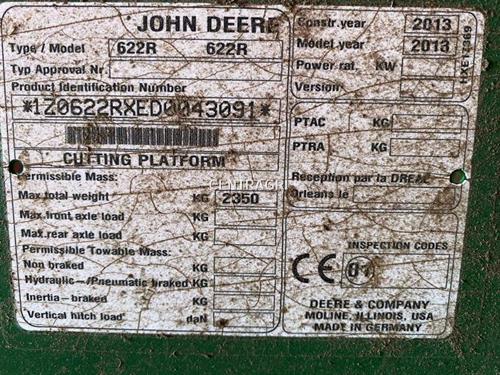 JOHN DEERE
Type / Model 622R 622R
Typ Approval Nr
Product Identification Number
*1Z0622RXED0043091*
CUTTING PLATFORM
Permissible Mass:
Max total weight KG 2350
Max.front axle load KG
Max.rear axle load KG
Permissible Towable Mass:
Non braked KG
Hydraulic-/Pneumatic braked KG
Inertia-braked KG
Vertical hitch load daN
Constr.year 2013
Model year 2013
Power rat. KW
Version
PTAC KG
PTRA KG
Reception par la
Orleans le
INSPECTION CODES
CE
DEERE & COMPANY
MOLINE, ILLINOIS, USA
MADE IN GERMANY